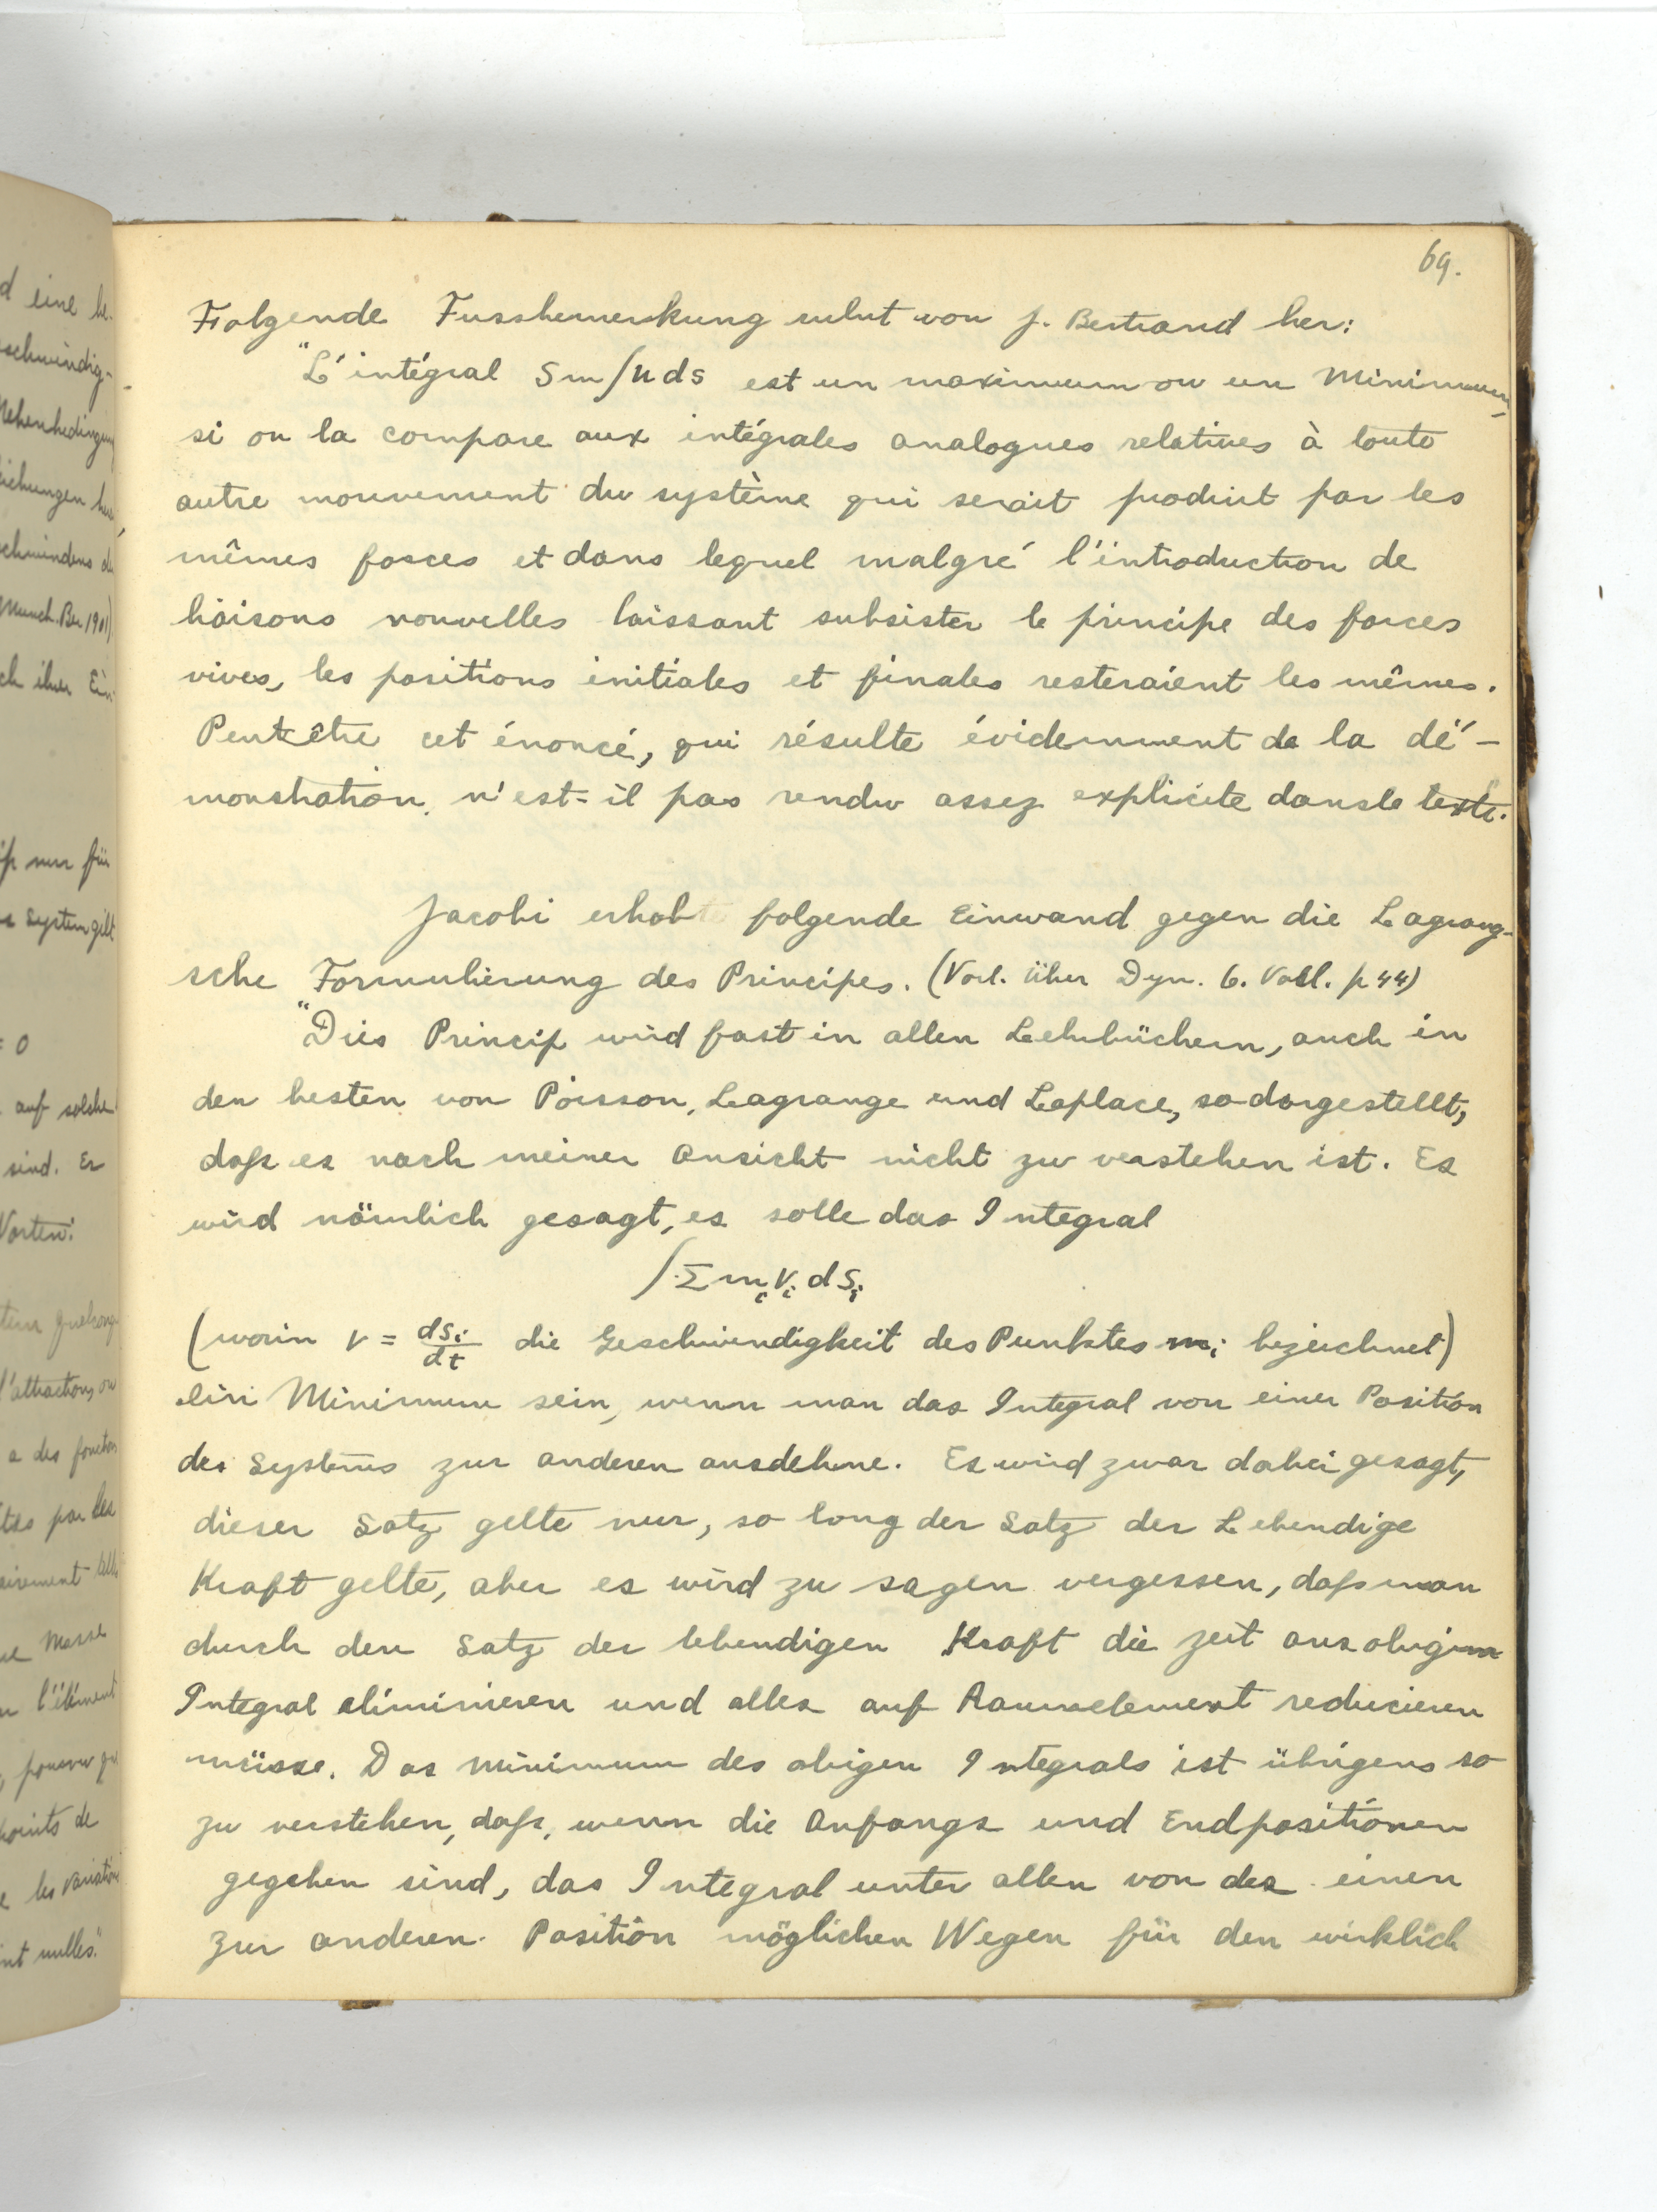 69.
Folgende Fussbemerkung ruht von J. Bertrand her:
"L'intégral Sm∫uds est un maximum ou un Minimum,
si on la compare aux intégrales analogues relatives à toute
autre mouvement du système qui serait produit par les
mêmes forces et dans lequel malgré l'introduction de
liaisons nouvelles laissant subsister le principe des forces
vives, les positions initiales et finales resteraient les mêmes.
Peut-être cet énoncé, qui résulte évidemment de la dé-
monstration, n'est-il pas rendu assez explicite dans le texte.
Jacobi erhob folgende Einwand gegen die Lagrang-
sche Formulierung des Principes. (Vorl. über Dyn. 6. Vorl. p 44)
"Dies Princip wird fast in allen Lehrbüchern, auch in
den besten von Poisson, Lagrange und Laplace, so dargestellt,
daß es nach meiner Ansicht nicht zu verstehen ist. Es
wird nämlich gesagt, es solle das Integral
∫ Σ mᵢ vᵢ dsᵢ
(worin v = dsᵢ/dt die Geschwindigkeit des Punktes mᵢ bezeichnet)
ein Minimum sein, wenn man das Integral von einer Position
des Systems zur anderen ausdehne. Es wird zwar dabei gesagt,
dieser Satz gelte nur, so lang der Satz der Lebendige
Kraft gelte, aber es wird zu sagen vergessen, daß man
durch den Satz der lebendigen Kraft die Zeit aus obigem
Integral eliminieren und alles auf Raumelement reducieren
müsse. Das Minimum des obigen Integrals ist übrigens so
zu verstehen, daß, wenn die Anfangs und Endpositionen
gegeben sind, das Integral unter allen von der einen
zur anderen Position möglichen Wegen für den wirklich